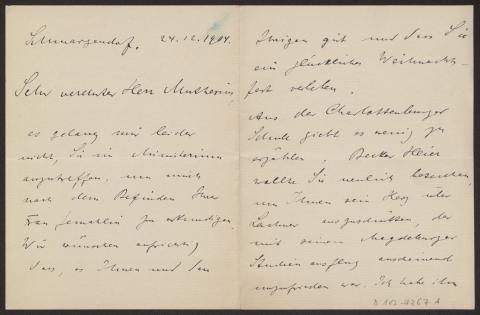 Schmargendorf, 24.12.1904.
Sehr verehrter Herr Muthesius,
es gelang mir leider
nicht, Sie im Ministerium
anzutreffen, um mich
nach dem Befinden Ihrer
Frau Gemahlin zu erkundigen.
Wir wünschen aufrichtig
dass es Ihnen und den
Ihrigen gut und dass Sie
ein glückliches Weihnachts-
fest verleben.
Aus der Charlottenburger
Schule giebt es wenig zu
erzählen.
wollte Sie neulich besuchen,
um Ihnen sein Herz über
auszuschütten, der
mit seinem Magdeburger
Studienausflug anscheinend
unzufrieden war. Ich habe ihn
D 102-4267 A